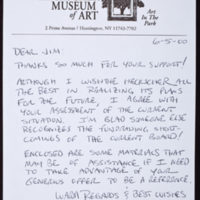 MUSEUM
OF ART
ART
IN THE
PARK
2 Prime Avenue / Huntington, NY 11743-7702
6-5-00
DEAR JIM
THANKS SO MUCH FOR YOUR SUPPORT!
ALTHOUGH I WISH THE HECKSCHER ALL
THE BEST IN REALIZING ITS PLANS
FOR THE FUTURE, I AGREE WITH
YOUR ASSESSMENT OF THE CURRENT
SITUATION. I'M GLAD SOMEONE ELSE
RECOGNIZES THE FUNDRAISING SHORT-
COMINGS OF THE CURRENT BOARD!
ENCLOSED ARE SOME MATERIALS THAT
MAY BE OF ASSISTANCE IF I NEED
TO TAKE ADVANTAGE OF YOUR
GENEROUS OFFER TO BE A REFERENCE.
WARM REGARDS & BEST WISHES